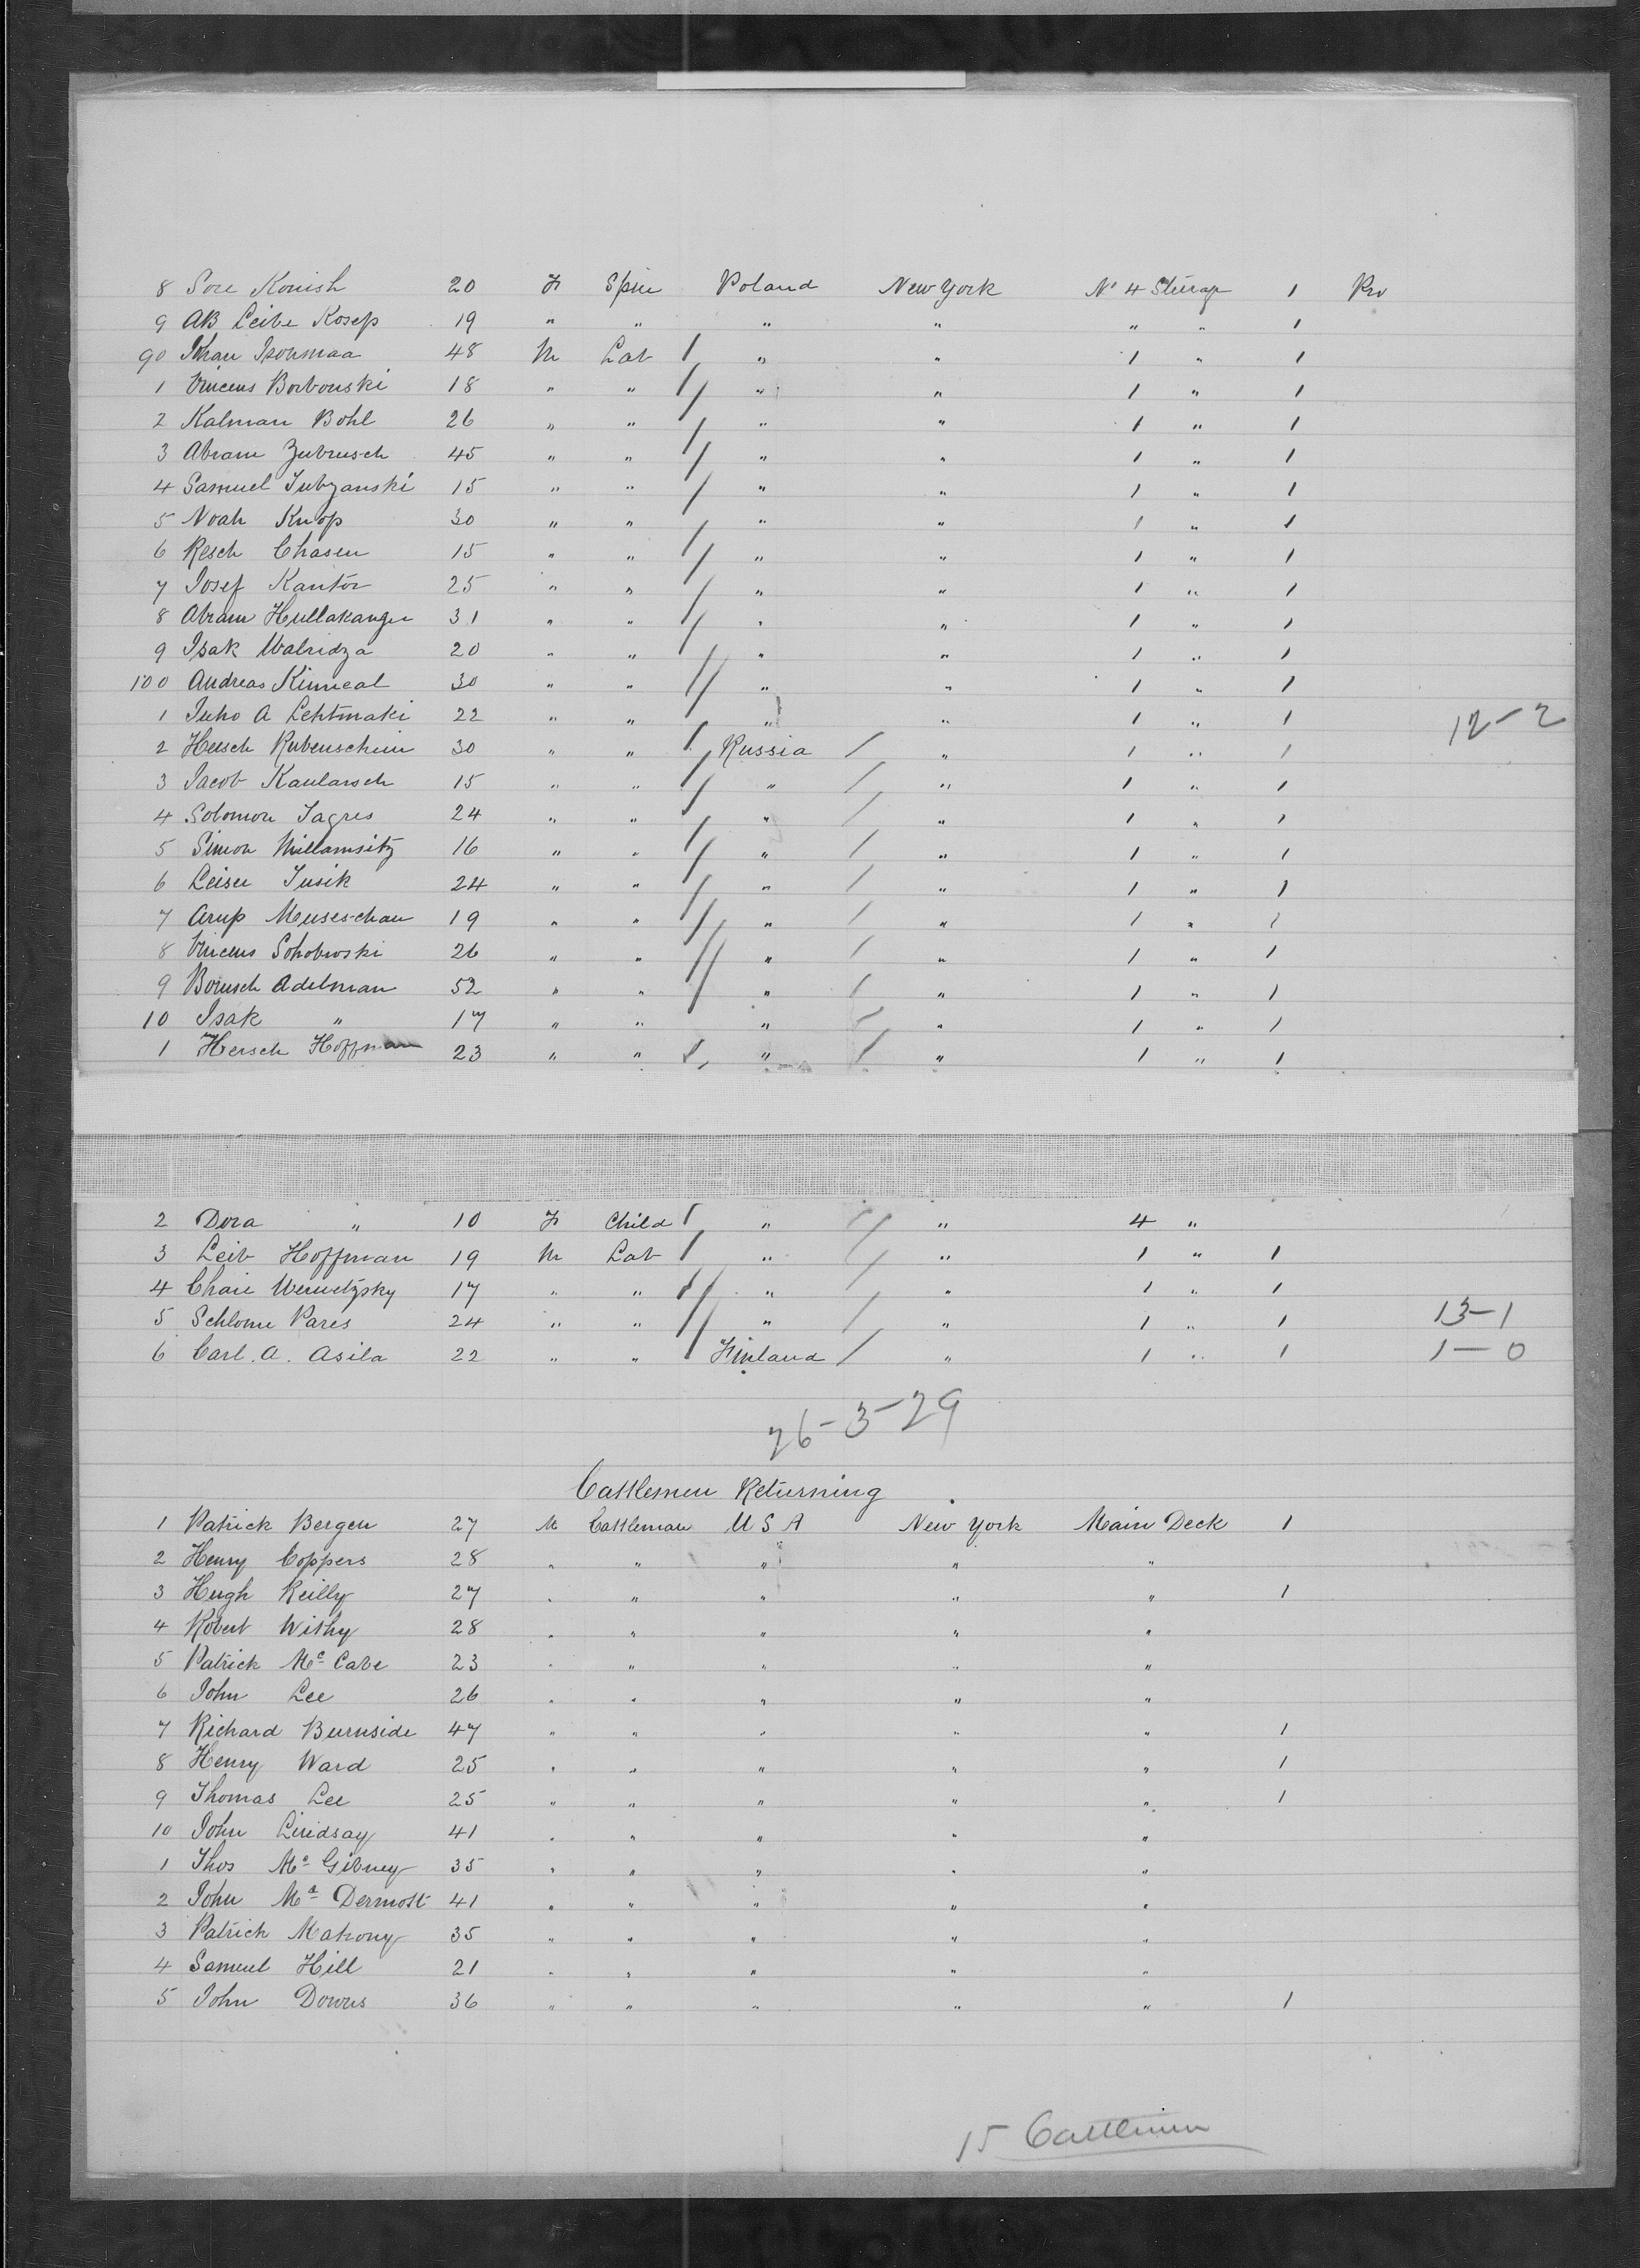 8 Sore Konish 20 F Spin Poland New York No 4 Steerage 1 Pro
9 AB Leibe Kosep 19 " " " " " " 1
90 Johan Isonmaa 48 M Lab " " 1 " 1
1 Vincens Borbonski 18 " " " " 1 " 1
2 Kalman Bohl 26 " " " " 1 " 1
3 Abram Zubrusch 45 " " " " 1 " 1
4 Samuel Jubzanski 15 " " " " 1 " 1
5 Noah Knop 30 " " " " 1 " 1
6 Resch Chasen 15 " " " " 1 " 1
7 Josef Kantor 25 " " " " 1 " 1
8 Abram Hullakangu 31 " " " " 1 " 1
9 Isak Walridza 20 " " " " 1 " 1
100 Andreas Kinneal 30 " " " " 1 " 1
1 Juho A Lehtmaki 22 " " " " 1 " 1 12-2
2 Hersch Rubenschein 30 " " Russia " 1 " 1
3 Jacob Kaularsch 15 " " " " 1 " 1
4 Solomon Jagres 24 " " " " 1 " 1
5 Simon Millamsitz 16 " " " " 1 " 1
6 Leiser Jusik 24 " " " " 1 " 1
7 Arup Museschau 19 " " " " 1 " 1
8 Vincens Sohobwski 26 " " " " 1 " 1
9 Borusch Adelman 52 " " " " 1 " 1
10 Isak " 17 " " " " 1 " 1
1 Hersch Hoffman 23 " " " " 1 " 1
2 Dora " 10 F Child " " 4 "
3 Leib Hoffman 19 M Lab " " 1 " 1
4 Chaie Wernetzsky 17 " " " " 1 " 1
5 Schlome Pares 24 " " " " 1 " 1 13-1
6 Carl. A. Asila 22 " " Finland " 1 " 1 1-0
26-3-29
Cattlemen Returning
1 Patrick Bergen 27 M Cattleman U S A New York Main Deck 1
2 Henry Coppers 28 " " " " "
3 Hugh Reilly 27 " " " " " 1
4 Robert Withy 28 " " " " "
5 Patrick Mc Cabe 23 " " " " "
6 John Lee 26 " " " " "
7 Richard Burnside 47 " " " " " 1
8 Henry Ward 25 " " " " " 1
9 Thomas Lee 25 " " " " " 1
10 John Lindsay 41 " " " " "
1 Thos Mc Gibney 35 " " " " "
2 John Mc Dermott 41 " " " " "
3 Patrick Mahony 35 " " " " "
4 Samuel Hill 21 " " " " "
5 John Downs 36 " " " " " 1
15 Cattlemen